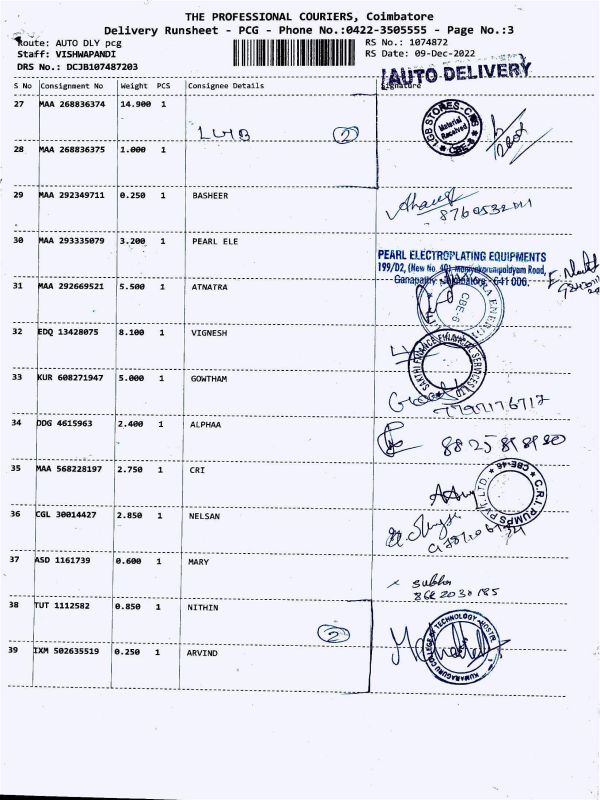 THE PROFESSIONAL COURIERS, Coimbatore
Delivery Runsheet - PCG - Phone No.:0422-3505555 - Page No.:3
Route: AUTO DLY pcg RS No.: 1074872
Staff: VISHWAPANDI RS Date: 09-Dec-2022
DRS No.: DCJB107487203
AUTO DELIVERY
S No Consignment No Weight PCS Consignee Details Signature
27 MAA 268836374 14.900 1
LGB 2
LGB STORES-CBS Material Received CBE-6
28 MAA 268836375 1.000 1
29 MAA 292349711 0.250 1 BASHEER
30 MAA 293335079 3.200 1 PEARL ELE
PEARL ELECTROPLATING EQUIPMENTS
199/D2, (New No. 40) Road,
Ganapathy, Coimbatore - 641 006.
31 MAA 292669521 5.500 1 ATNATRA
CBE-6
32 EDQ 13428075 8.100 1 VIGNESH
SAKTHI FINANCIAL SERVICES LTD
33 KUR 608271947 5.000 1 GOWTHAM
34 DDG 4615963 2.400 1 ALPHAA
35 MAA 568228197 2.750 1 CRI
C.R.I. PUMPS PVT. LTD. CBE-46
36 CGL 30014427 2.850 1 NELSAN
37 ASD 1161739 0.600 1 MARY
38 TUT 1112582 0.850 1 NITHIN
2
KUMARAGURU COLLEGE OF TECHNOLOGY
39 IXM 502635519 0.250 1 ARVIND